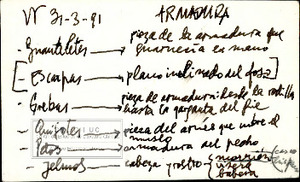 VV 31-3-91 ARMADURA
- Guanteletes → pieza de la armadura que
guarnecía la mano
- Escarpas → plano inclinado del foso
- Grebas → pieza de armadura desde la rodilla
hasta la garganta del pie
- Quijotes → pieza del arnés que cubre el
muslo
- Petos → armadura del pecho
- Yelmos → cabeza y rostro { morrión
visera
babera
casco